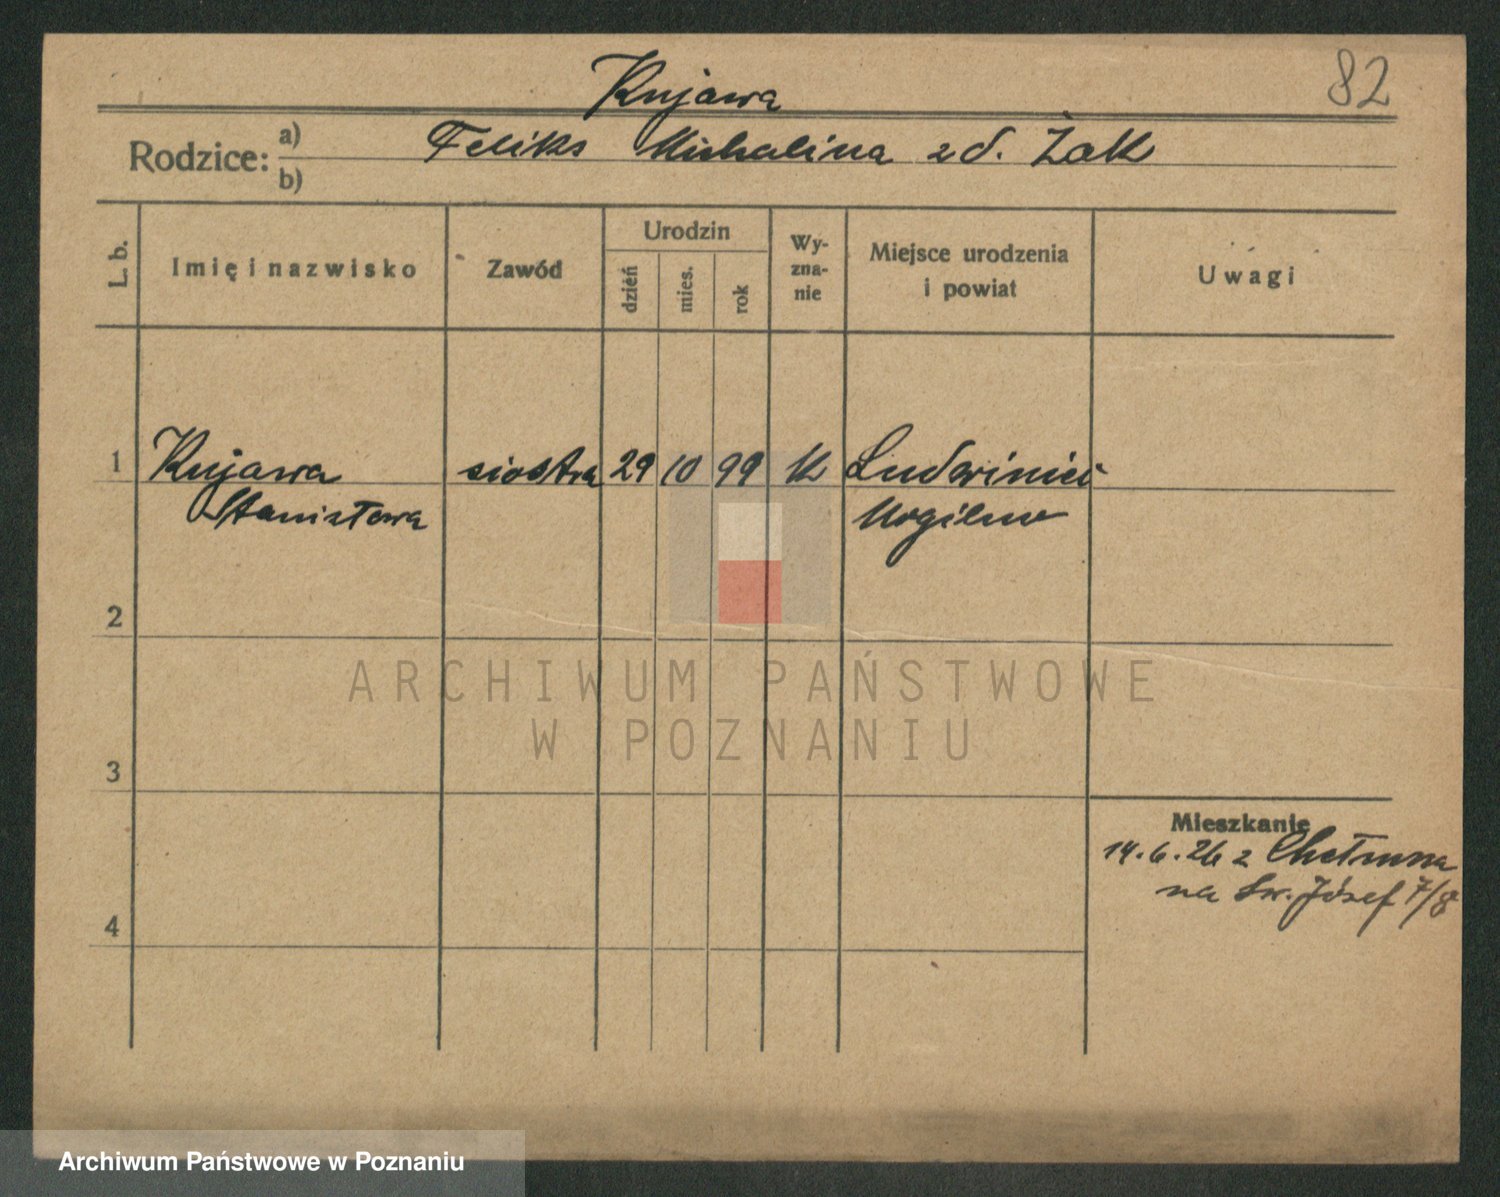 82
Kujawa
Rodzice: a) b) Feliks Michalina zd. Żak
L. b.
Imię i nazwisko
Zawód
Urodzin
dzień
mies.
rok
Wy-
zna-
nie
Miejsce urodzenia
i powiat
Uwagi
1 Kujawa siostra 29 10 99 K Ludwiniec
Stanisława Mogilno
2
3
4
Mieszkanie
14.6.26 z Chełmna
na Św. Józef 7/8
ARCHIWUM PAŃSTWOWE
W POZNANIU
Archiwum Państwowe w Poznaniu